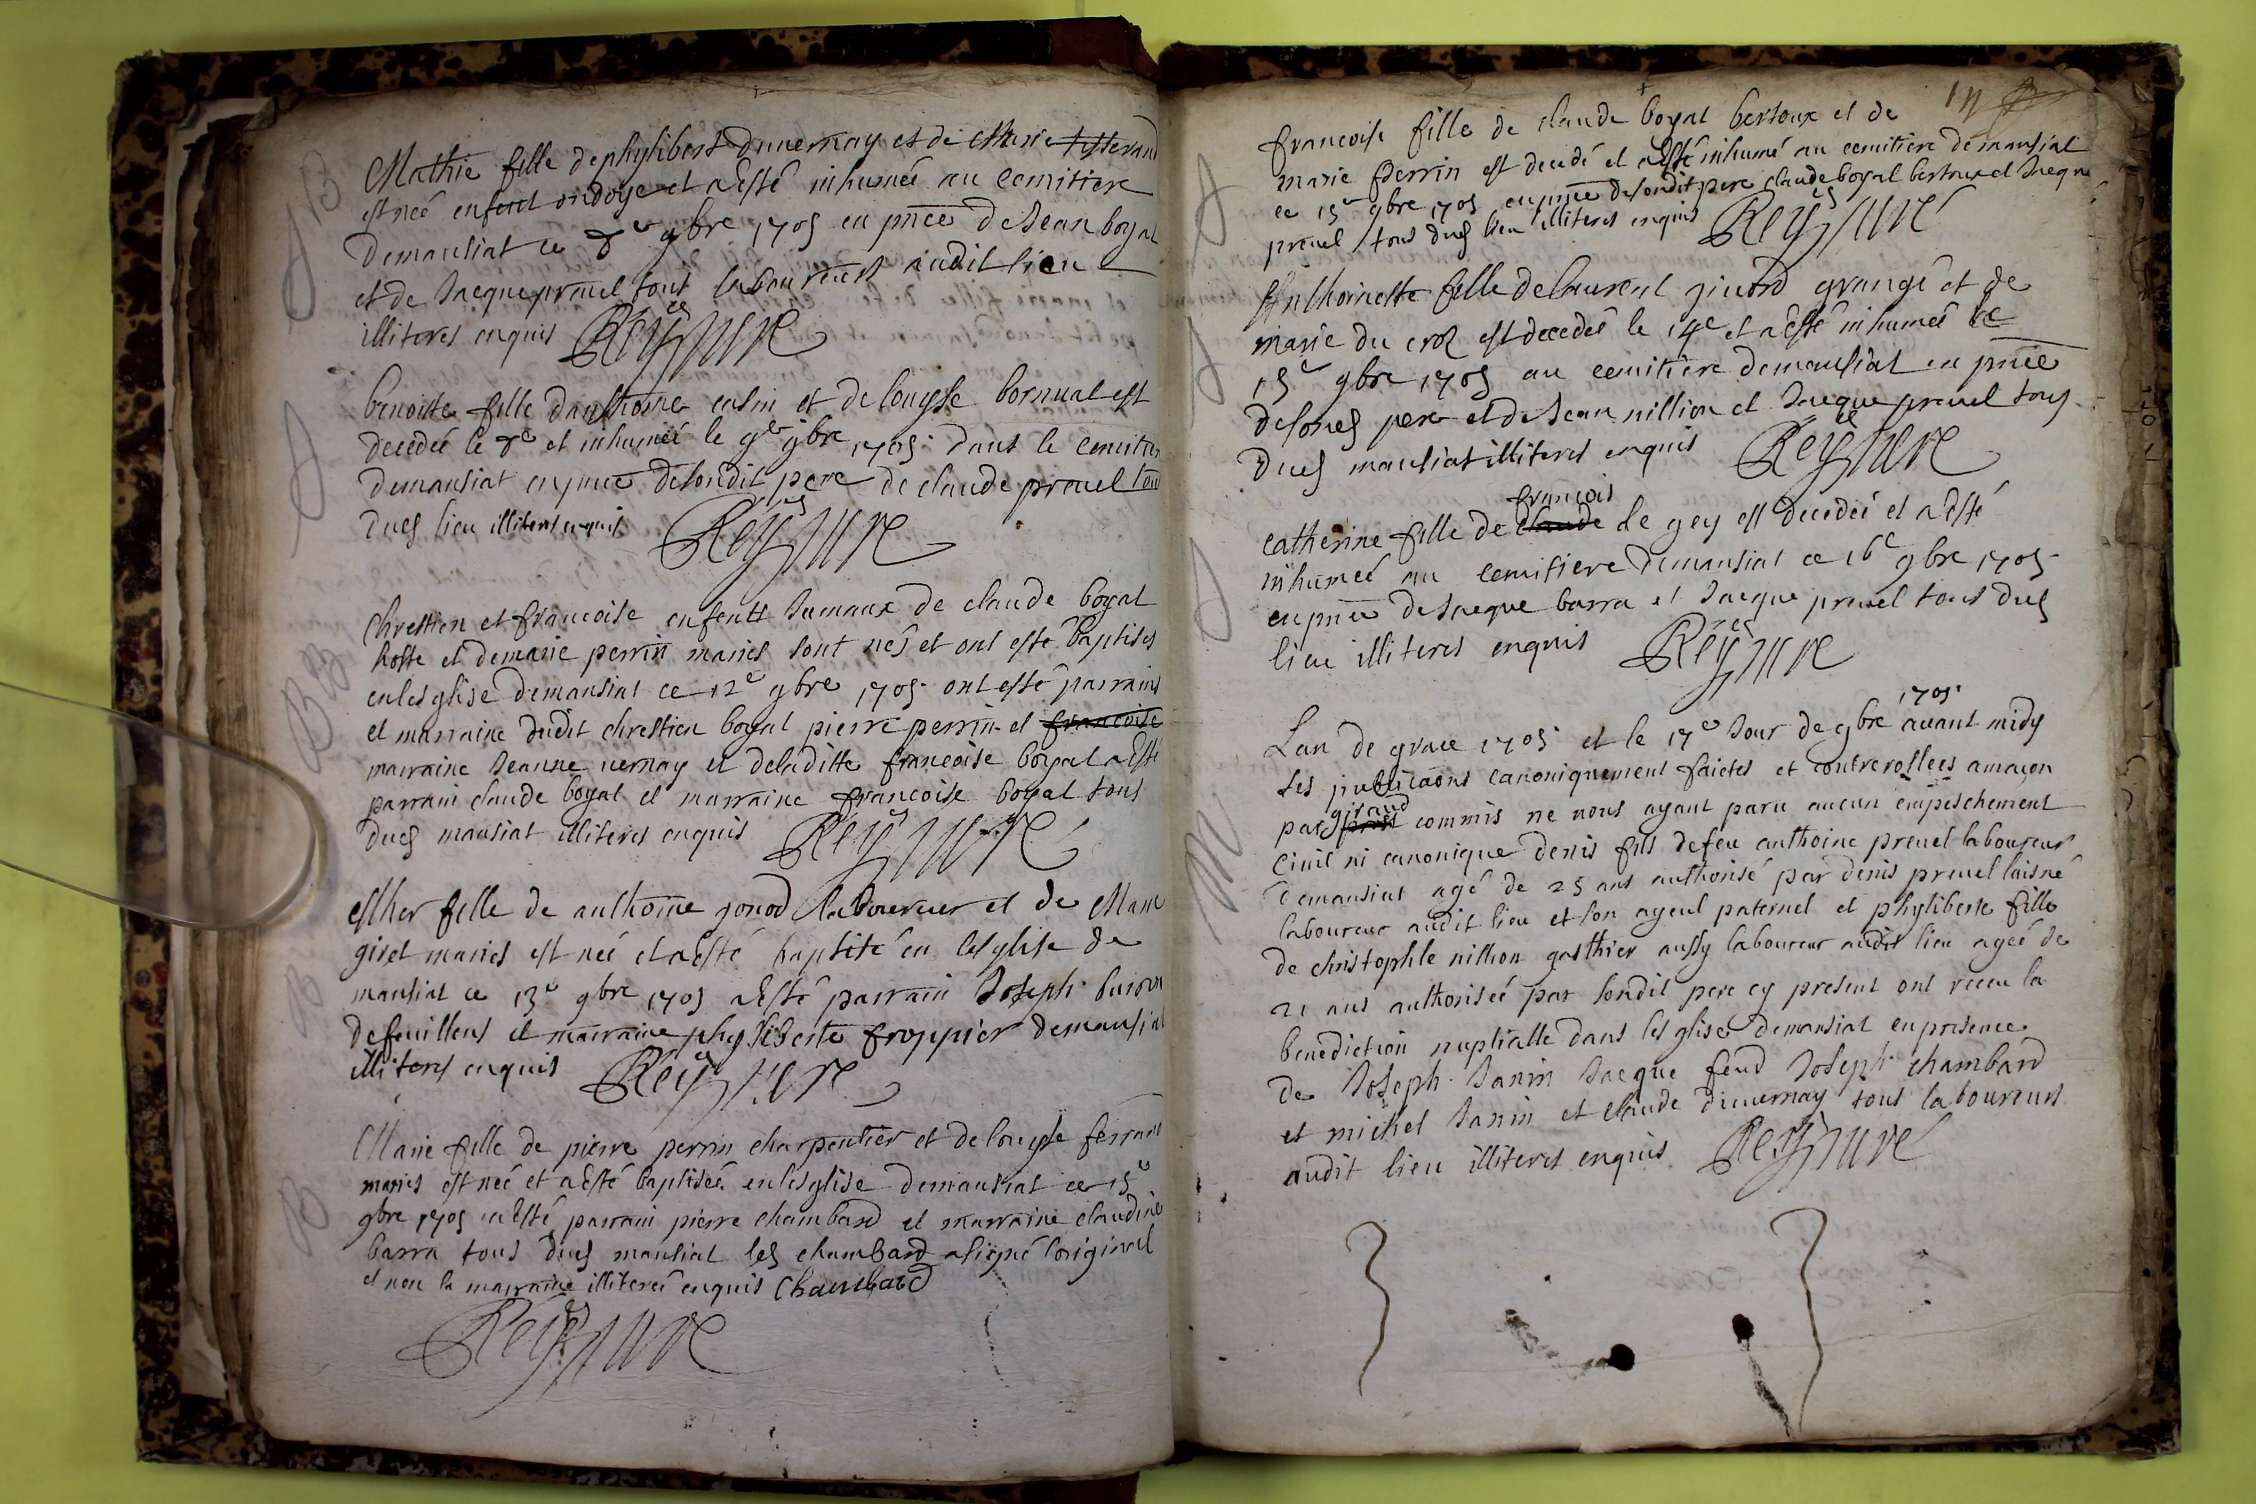 Mathie fille de phylibert Duuernay et de Marie tisserand
est née enfent ondoyé et a esté inhumée au cemitiere
de mansiat ce 8e 9bre 1705 en pnce de Jean boyat
et de Jacque preuel tous laboureurs audit lieu
illiteres enquis Rey curé
benoiste fille danthoine casin et de louyse bornuat est
decedeé le 8e et inhumeé le 9e 9bre 1705 dans le cemitiere
de mansiat en pnce de sondit pere de claude preuel tous
duds lieu illiteres enquis Rey curé
Chrestien et francoise enfents Jumaux de claude boyat
hoste et de marie perrin mariés sont nés et ont esté baptisés
en lesglise de mansiat ce 12e 9bre 1705 ont esté parrains
et marraine dudit chrestien boyat pierre perrin et francoise
marraine Jeanne uernay et de laditte francoise boyat a esté
parrain claude boyat et marraine francoise boyat tous
duds mansiat illiteres enquis Rey curé
esther fille de anthoine gonod laboureur et de Marie
giret mariés est neé et a esté baptiseé en lesglise de
mansiat ce 13e 9bre 1705 a esté parrain Joseph buiron
de feuillens et marraine phyliberte froppier de mansiat
illiteres enquis Rey curé
Marie fille de pierre perrin charpentier et de louyse ferrand
mariés est neé et a esté baptiseé en lesglise de mansiat ce 15e
9bre 1705 a esté parrain pierre chambard et marraine claudine
barra tous duds mansiat leds chambard a signé loriginal
et non la marraine illitereé enquis Chambard
Rey curé
francoise fille de claude boyat bertoux et de
marie perrin est decedé et a esté inhumé au cemitiere de mansiat
ce 15e 9bre 1705 en pnce de sondit pere claude boyat bertoux et Jacque
preuel tous duds lieu illiteres enquis Rey curé
Anthoinette fille de laurent giuord grangé et de
marie du croz est decedeé le 14e et a esté inhumeé le
15e 9bre 1705 au cemitiere de mansiat en pnce
de sonds pere et de Jean nillion et Jacque preuel tous
duds mansiat illiteres enquis Rey curé
francois
catherine fille de claude de gey est decedeé et a esté
inhumeé au cemitiere de mansiat ce 16e 9bre 1705
en pnce de Jacque barra et Jacque preuel tous duds
lieu illiteres enquis Rey curé
1705
Lan de grace 1705 et le 17e Jour de 9bre auant midy
les publicaons canoniquement faictes et controrollees a macon
par giraud commis ne nous ayant paru aucun empeschement
ciuil ni canonique denis fils de feu anthoine preuel laboureur
de mansiat agé de 25 ans authorisé par denis preuel laisné
laboureur audit lieu et son ayeul paternel et phyliberte fille
de christophle nillion gasthier aussy laboureur audit lieu ageé de
21 ans authoriseé par sondit pere cy present ont receu la
benediction nuptialle dans lesglise de mansiat en presence
de Joseph Janin Jacque feud Joseph chambard
et michel Janin et claude duuernay tous laboureurs
audit lieu illiteres enquis Rey curé